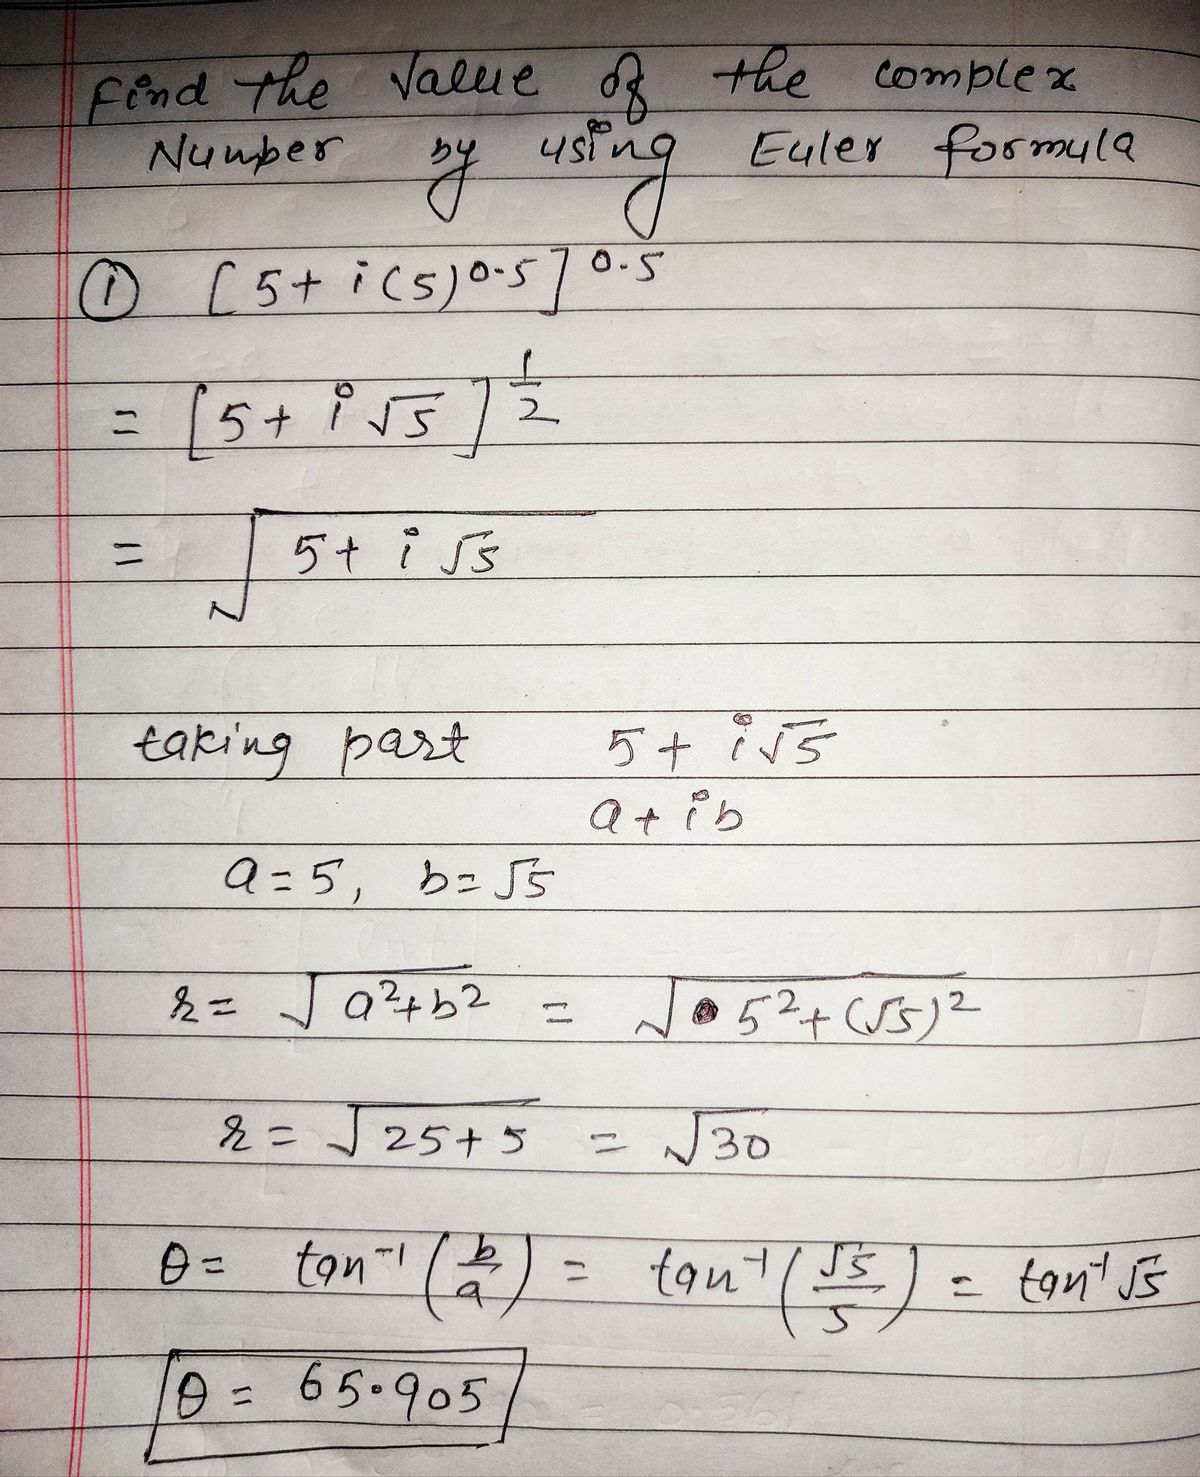 Find the value of the complex
Number by using Euler formula
① [5+ i(5)^0.5]^0.5
= [5+ i√5]^1/2
= √(5+ i√5)
taking part 5+ i√5
a+ib
a=5, b=√5
r= √(a²+b²) = √(5²+(√5)²)
r= √(25+5) = √30
θ= tan⁻¹(b/a) = tan⁻¹(√5/5) = tan⁻¹√5
θ= 65.905